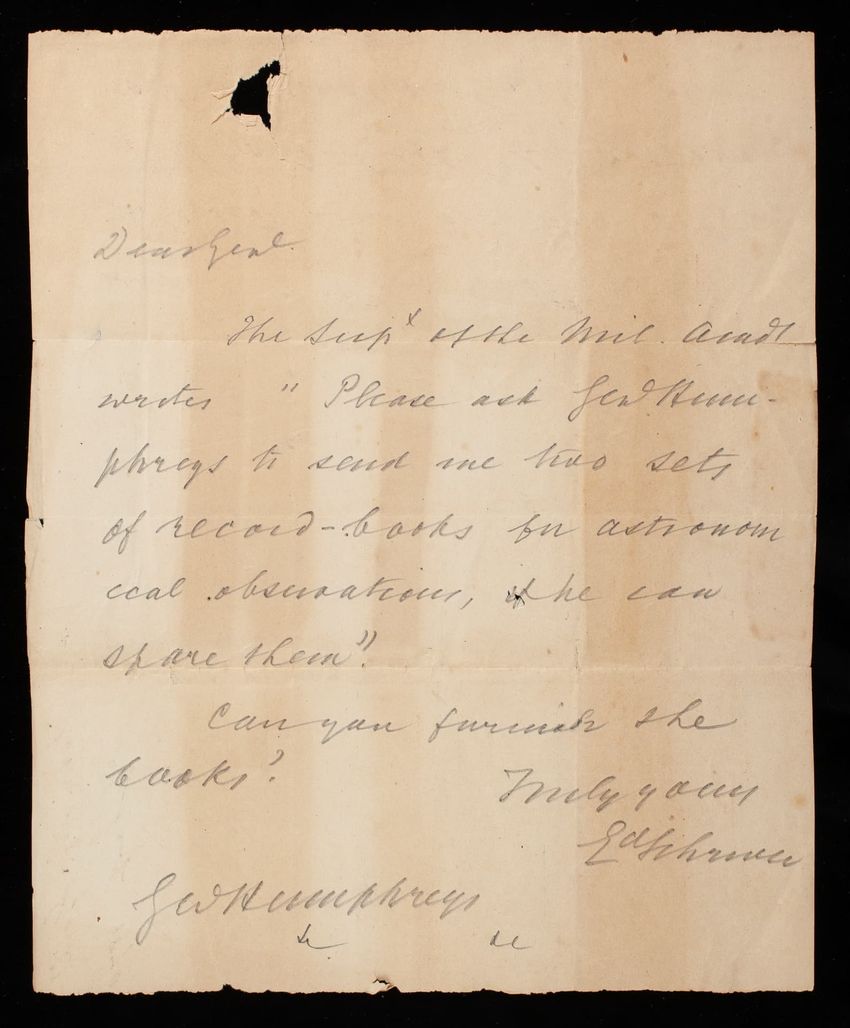 Dear Genl.
The Supt of the Mil. Acad
writes " Please ask Genl Hum-
phreys to send me two sets
of record-books for astronom
ical observations, if he can
spare them".
Can you furnish the
books?
Truly yours
Ed Schriver
Genl Humphreys
&c &c